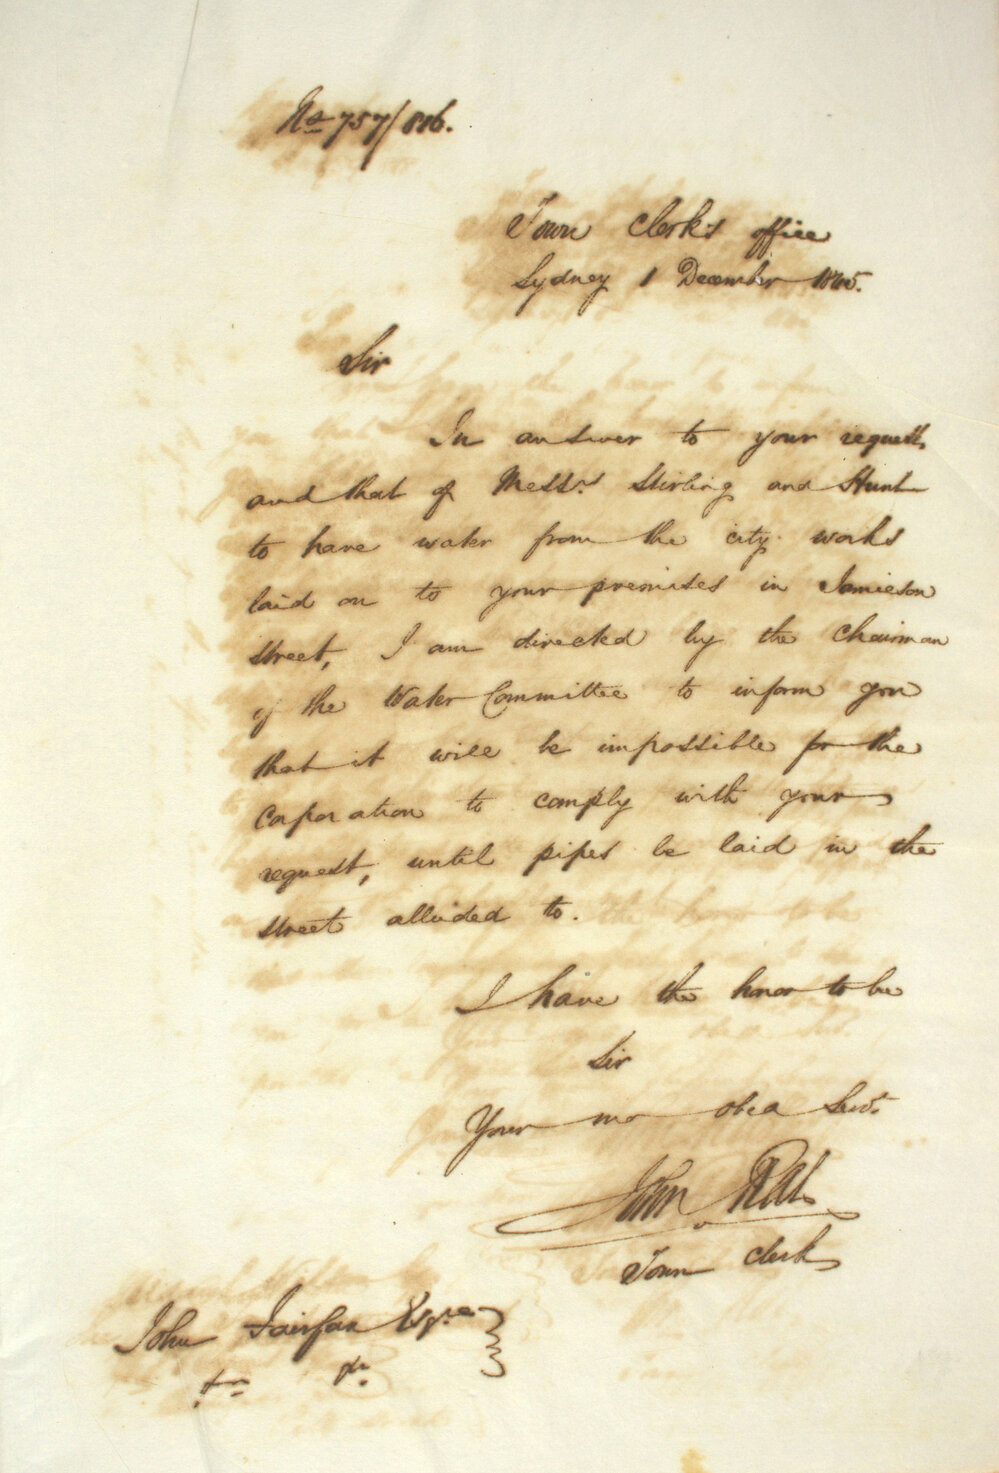 No 757/886.
Town Clerk's office
Sydney 1 December 1845.
Sir
In answer to your request,
and that of Messrs Stirling and Hunt
to have water from the city works
laid on to your premises in Jamieson
street, I am directed by the Chairman
of the Water Committee to inform you
that it will be impossible for the
Corporation to comply with your
request, until pipes be laid in the
street alluded to.
I have the honor to be
Sir
Your mo obed Servt
John
Town Clerk
John Fairfax Esqre